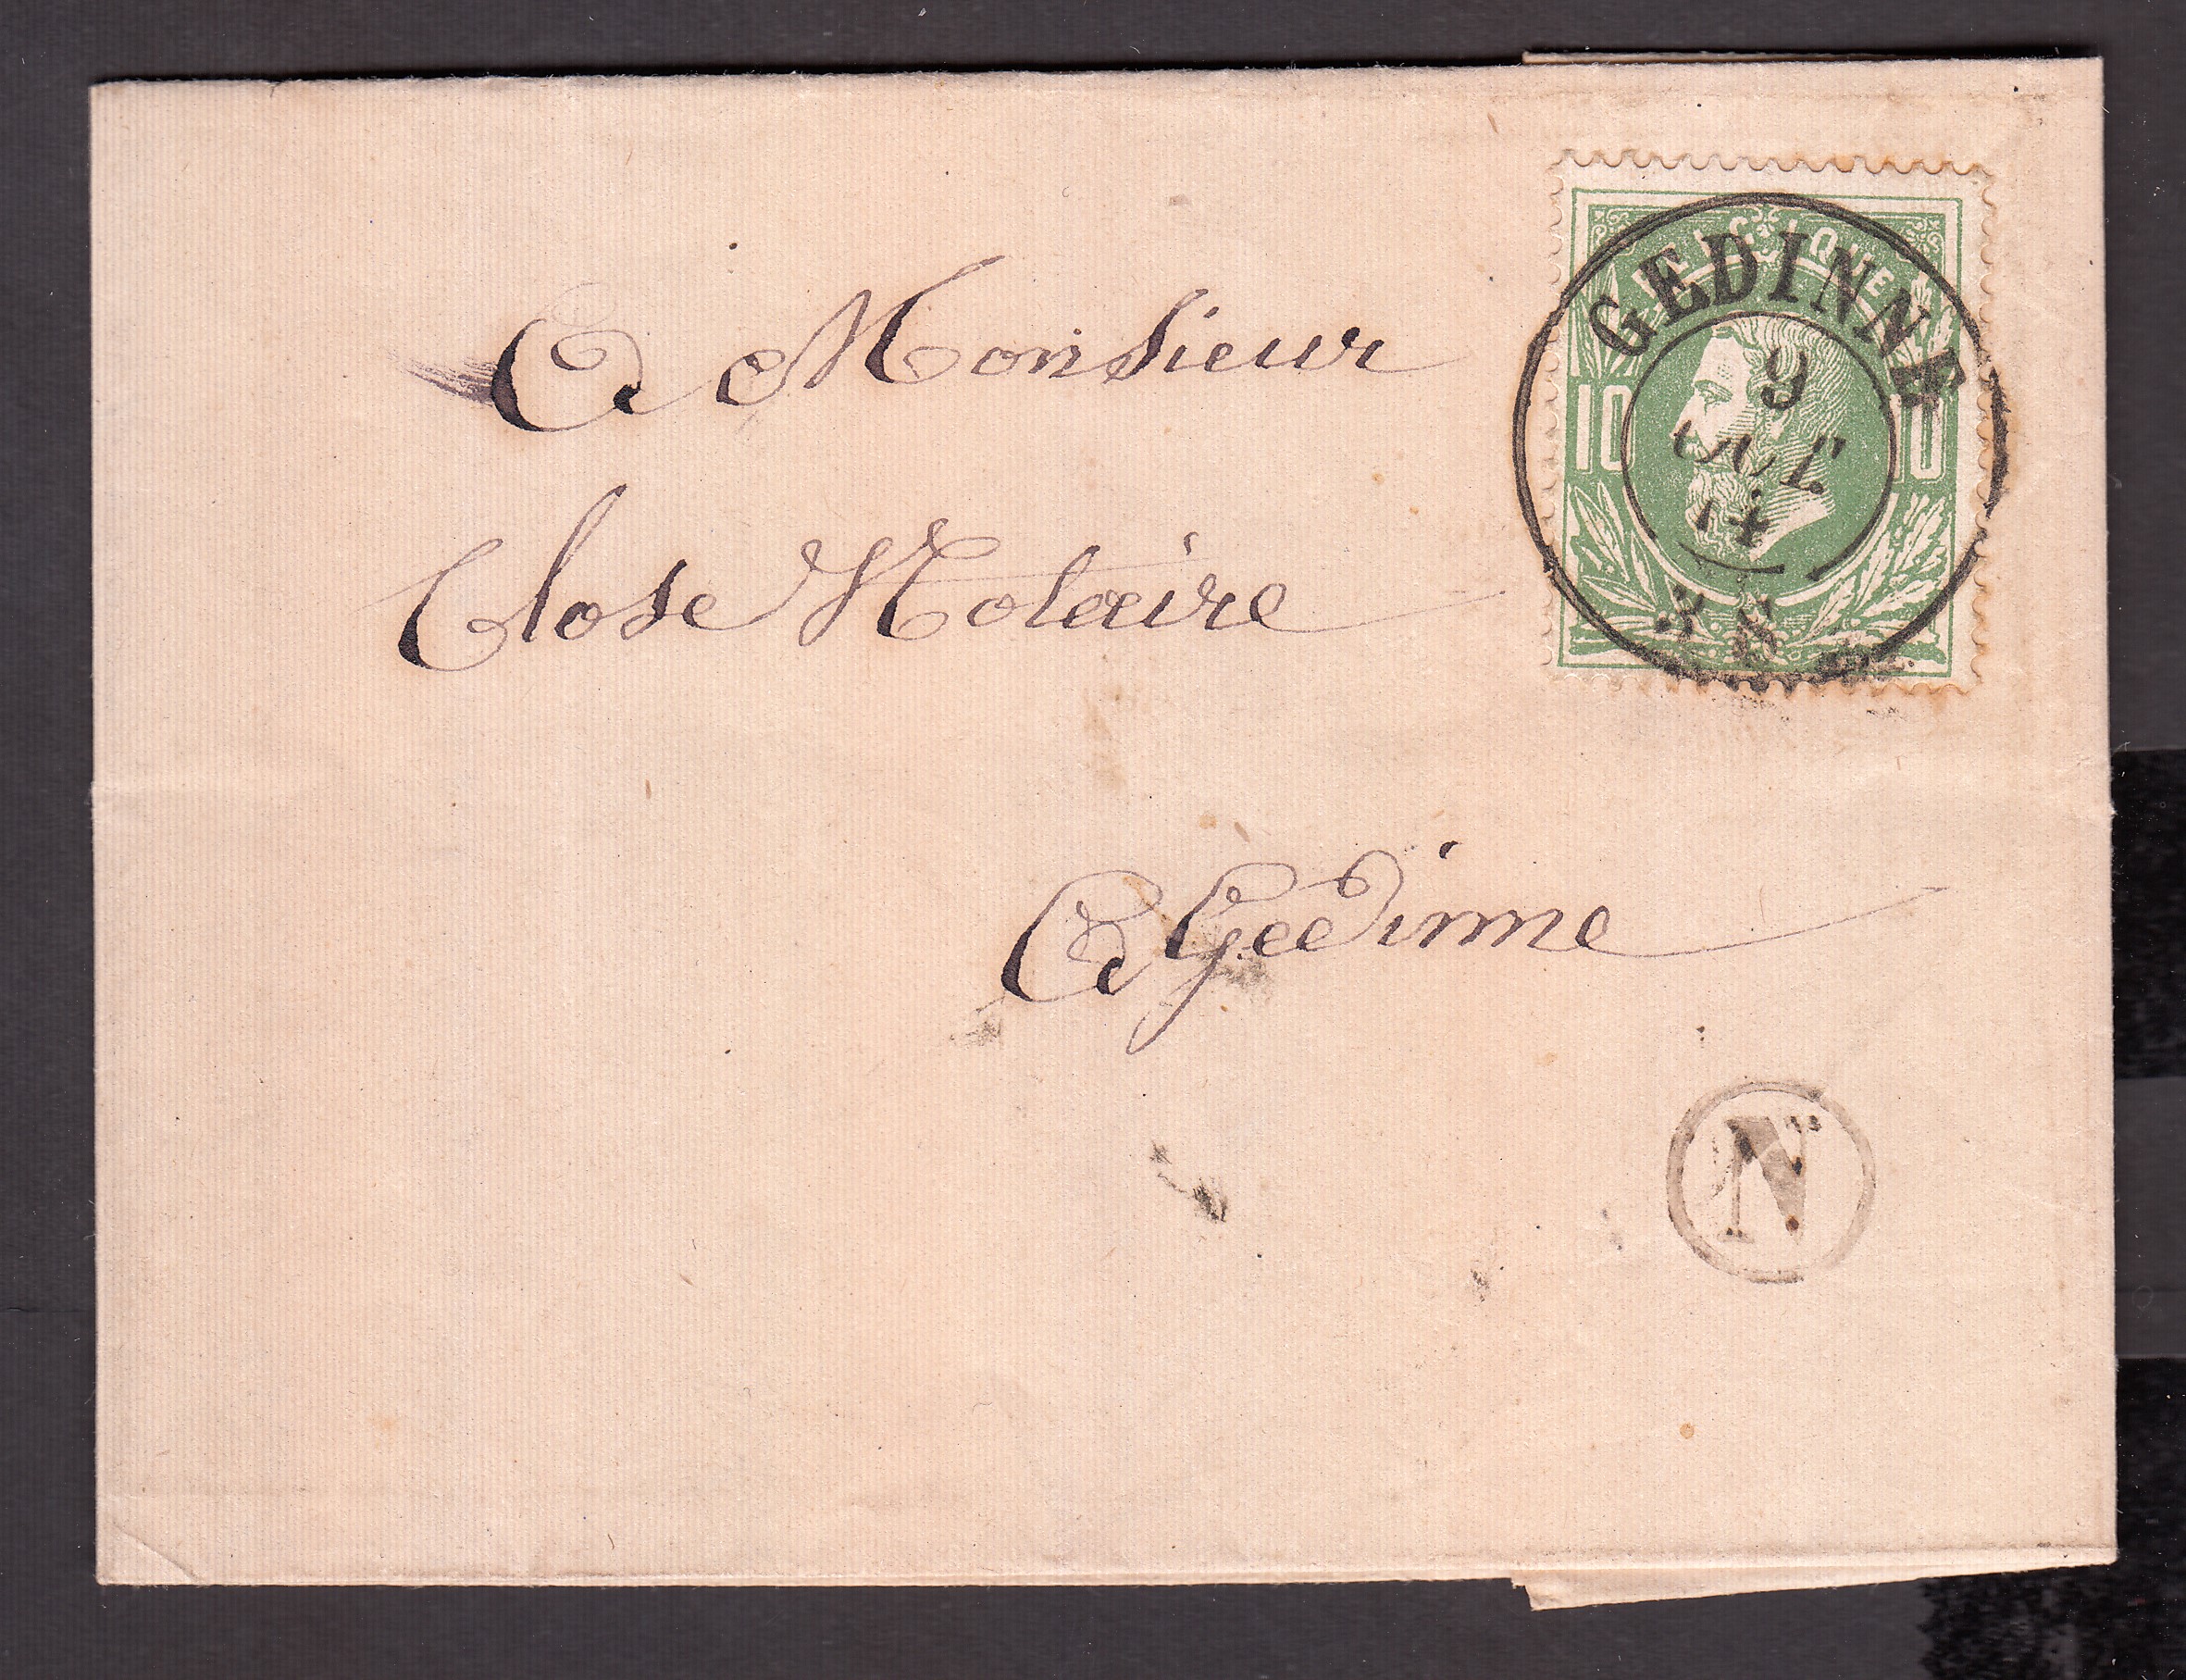 BELGIQUE
10 10
GEDINNE
9
OCT
74
3 S
A Monsieur
Close Notaire
A Gedinne
N